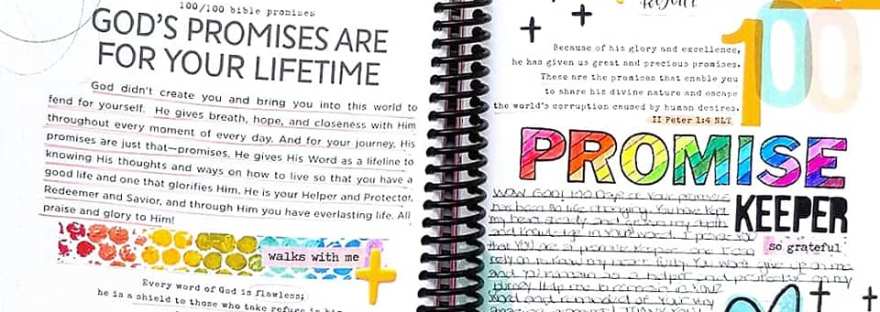 100/100 bible promises
GOD'S PROMISES ARE
FOR YOUR LIFETIME
God didn't create you and bring you into this world to
fend for yourself. He gives breath, hope, and closeness with Him
throughout every moment of every day. And for your journey, His
promises are just that—promises. He gives His Word as a lifeline to
knowing His thoughts and ways on how to live so that you have a
good life and one that glorifies Him. He is your Helper and Protector,
Redeemer and Savior, and through Him you have everlasting life. All
praise and glory to Him!
walks with me
Every word of God is flawless;
he is a shield to those who take refuge in him
Rejoice
100
Because of his glory and excellence,
he has given us great and precious promises.
These are the promises that enable you
to share his divine nature and escape
the world's corruption caused by human desires.
II Peter 1:4 NLT
PROMISE
KEEPER
so grateful
WOW GOD! 100 Days of Your promises
has been so life changing. You have kept
my heart steady and
and in Your word. I praise You
that YOU are a promise keeper
rely on
and You remain as a helper and protector in my
journey. Help me to remain in YOUR
Word and reminded of Your very